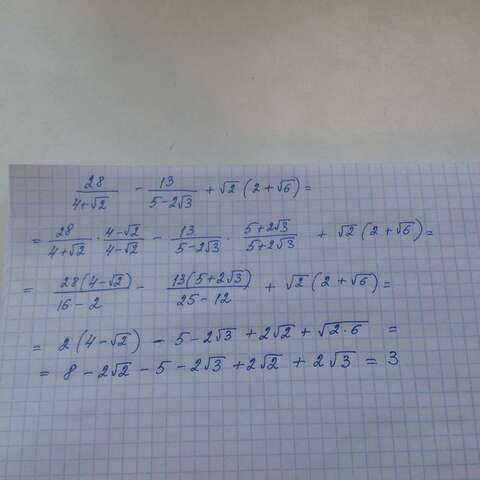 28/(4+√2) - 13/(5-2√3) + √2 (2+√6) =
= 28/(4+√2) · (4-√2)/(4-√2) - 13/(5-2√3) · (5+2√3)/(5+2√3) + √2 (2+√6) =
= 28(4-√2)/(16-2) - 13(5+2√3)/(25-12) + √2 (2+√6) =
= 2(4-√2) - 5-2√3 +2√2 + √(2·6) =
= 8 - 2√2 - 5 - 2√3 + 2√2 + 2√3 = 3